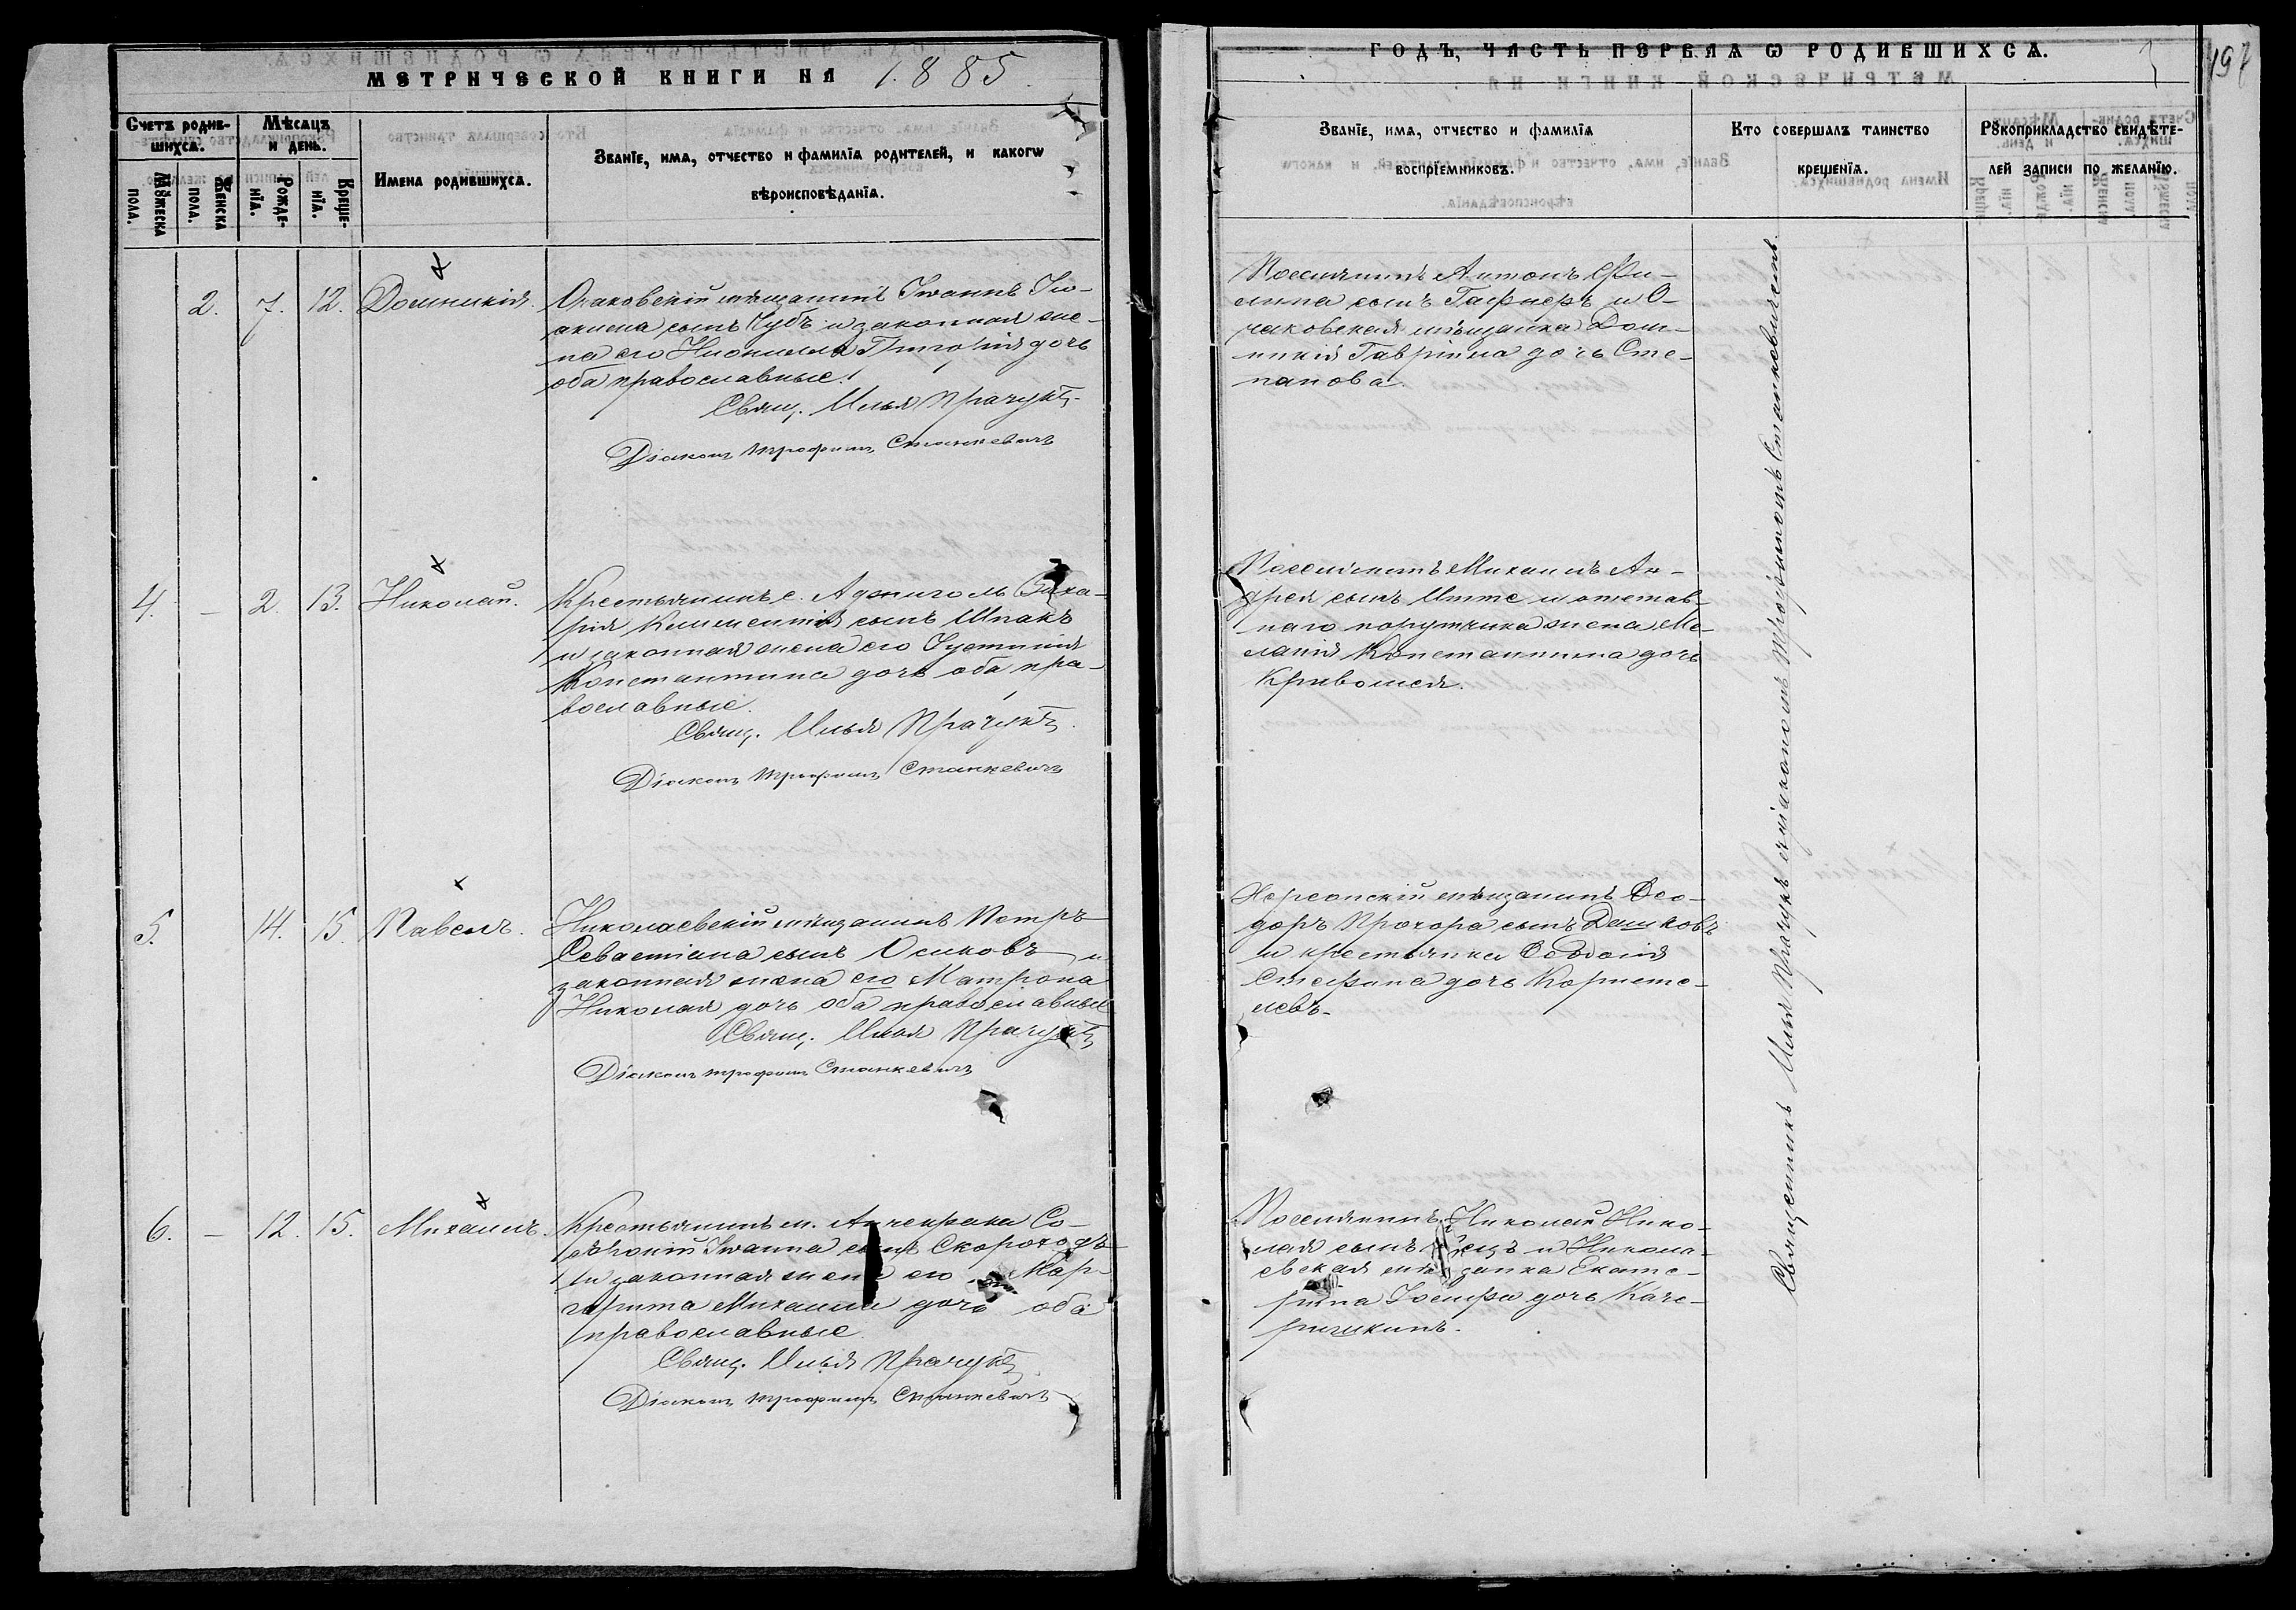 МЕТРИЧЕСКОЙ КНИГИ НА 1885
Счетъ родив-
шихсѧ.
Мѣсѧцъ
и день.
Имена родившихсѧ.
Званїе, имѧ, отчество и фамилїѧ родителей, и какогѡ
вѣроисповѣданїѧ.
Мꙋжеска
пола.
Женска
пола.
Рожде-
нїѧ.
Креще-
нїѧ.
2. 7. 12. Домникія.
Очаковскій мѣщанинъ Іоаннъ Іо-
акима сынъ Чубъ и законная же-
на его Неонилла дочь
оба православные.
Свящ. Илья Прачукъ
Діаконъ Трофимъ Станкевичъ
4. – 2. 13. Николай.
Крестьянинъ с. Аджиголь Заха-
рія Климентія сынъ Шпакъ
и законная жена его Іустинія
Константина дочь оба пра-
вославные.
Свящ. Илья Прачукъ
Діаконъ Трофимъ Станкевичъ
5. 14. 15. Павелъ.
Николаевскій мѣщанинъ Петръ
Севастіана сынъ Осиковъ и
законная жена его Матрона
Николая дочь оба православные
Свящ. Илья Прачукъ
Діаконъ Трофимъ Станкевичъ
6. – 12. 15. Михаилъ.
Крестьянинъ м. Анчекрака Со-
фроній Іоанна сынъ Скороходъ
и законная жена его Мар-
гарита Михаила дочь оба
православные.
Свящ. Илья Прачукъ
Діаконъ Трофимъ Станкевичъ
ГОДЪ, ЧАСТЬ ПЕРВАЯ Ѡ РОДИВШИХСѦ.
197
Званїе, имѧ, отчество и фамилїѧ
воспрїемниковъ.
Кто совершалъ таинство
крещенїѧ.
Рꙋкоприкладство свидѣте-
лей записи по желанїю.
Поселянинъ Антонъ Фи-
липа сынъ Гафнеръ и О-
чаковская мѣщанка Дом-
никія Гавріила дочь Сте-
панова.
Поселянинъ Михаилъ Ан-
дрея сынъ и отстав-
наго поручика жена Ме-
ланія Константина дочь
Кривошея.
Херсонскій мѣщанинъ Ѳео-
доръ Прохора сынъ Дашковъ
и крестьянка Ѳеодосія
Стефана дочь
Поселянинъ Николай Нико-
лая сынъ и Никола-
евская мѣщанка Екате-
рина Іосифа дочь
Священникъ Илья Прачукъ съ діакономъ Трофимомъ Станкевичемъ.